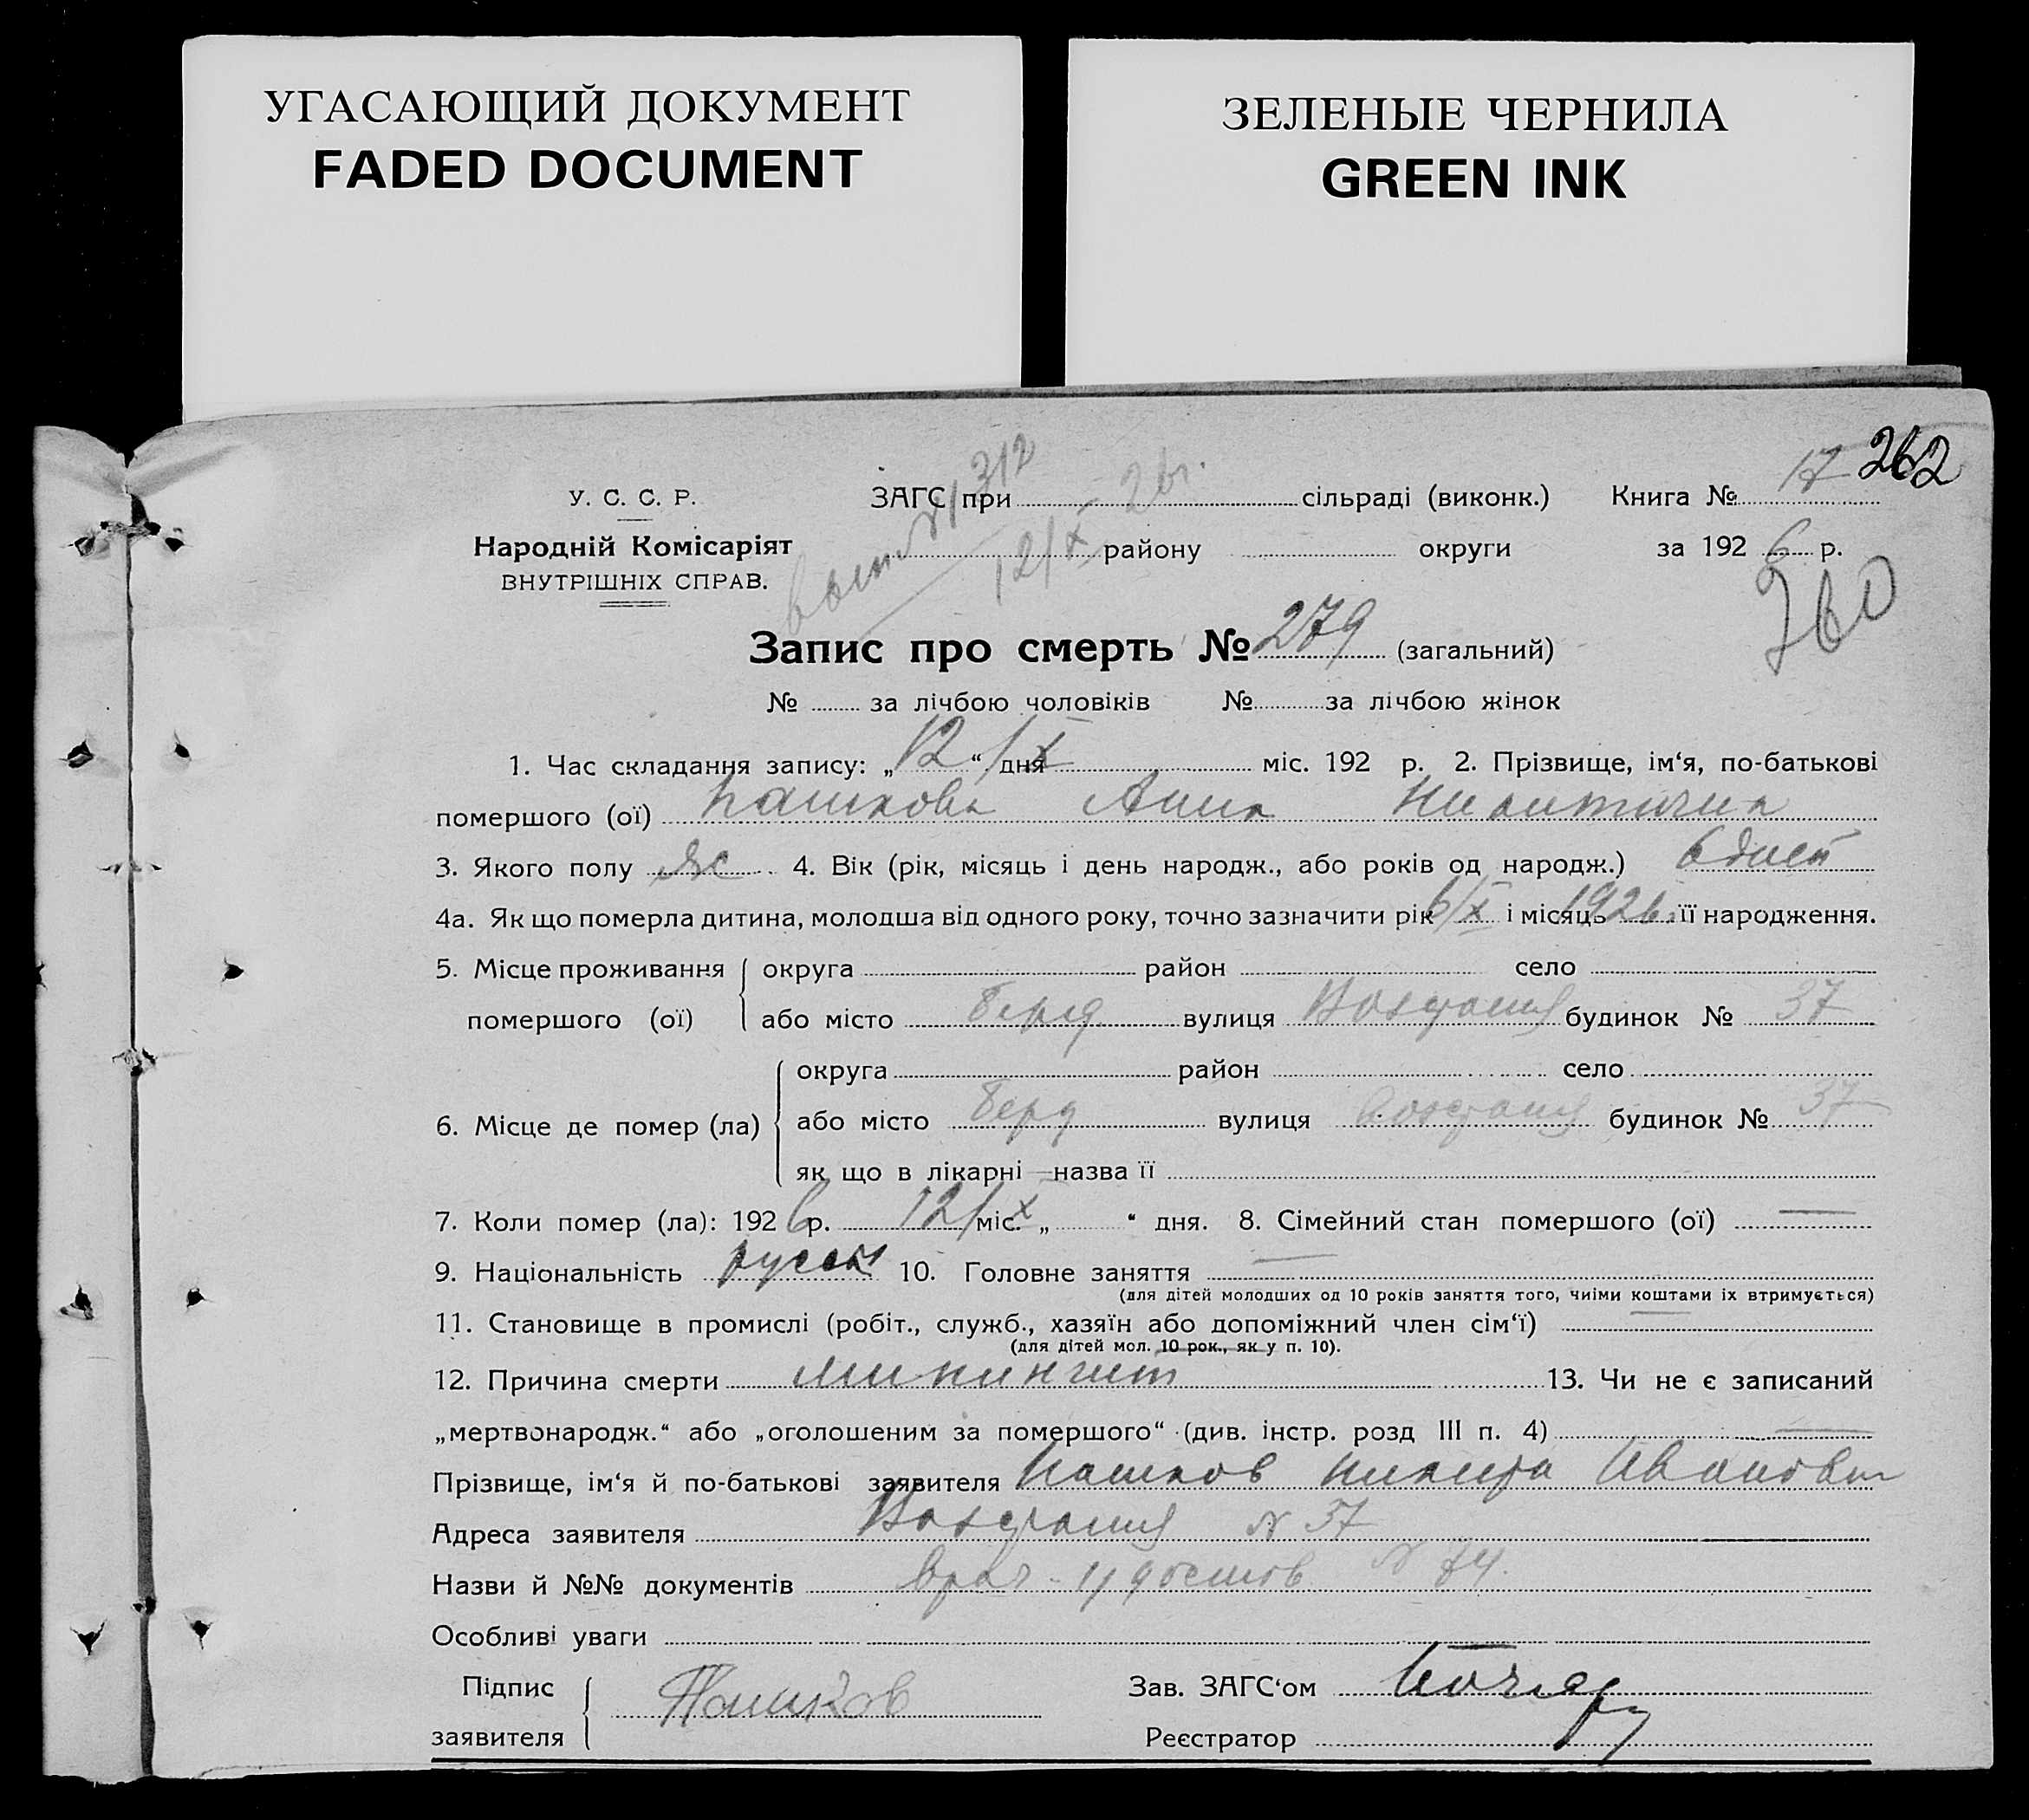 УГАСАЮЩИЙ ДОКУМЕНТ
FADED DOCUMENT
ЗЕЛЕНЫЕ ЧЕРНИЛА
GREEN INK
17 262
У. С. С. Р. ЗАГС при сільраді (виконк.) Книга №
Народній Комісаріят району округи за 192 6 р.
ВНУТРІШНІХ СПРАВ.
№ 312
12/X 26г.
260
Запис про смерть № 279 (загальний)
№ за лічбою чоловіків № за лічбою жінок
1. Час складання запису: „12“ дня /X міс. 192 р. 2. Прізвище, ім‘я, по-батькові
помершого (ої) Пашкова Анна Никитична
3. Якого полу ж 4. Вік (рік, місяць і день народж., або років од народж.) 6 дней
4а. Як що померла дитина, молодша від одного року, точно зазначити рік 6/X і місяць 1926. її народження.
5. Місце проживання помершого (ої) округа район село
або місто Берд вулиця Восстания будинок № 37
6. Місце де помер (ла) округа район село
або місто Берд вулиця Восстания будинок № 37
як що в лікарні—назва її
7. Коли помер (ла): 192 6 р. 12/X міс. „ “ дня. 8. Сімейний стан помершого (ої) —
9. Національність русск 10. Головне заняття —
(для дітей молодших од 10 років заняття того, чиїми коштами їх втримується)
11. Становище в промислі (робіт., служб., хазяїн або допоміжний член сім‘ї) —
(для дітей мол. 10 рок., як у п. 10).
12. Причина смерти минингит 13. Чи не є записаний
„мертвонародж.“ або „оголошеним за помершого“ (див. інстр. розд III п. 4) —
Прізвище, ім‘я й по-батькові заявителя Пашков Никита Иванович
Адреса заявителя Восстания № 37
Назви й №№ документів врач-удостов № 74.
Особливі уваги —
Підпис заявителя Пашков Зав. ЗАГС‘ом
Реєстратор